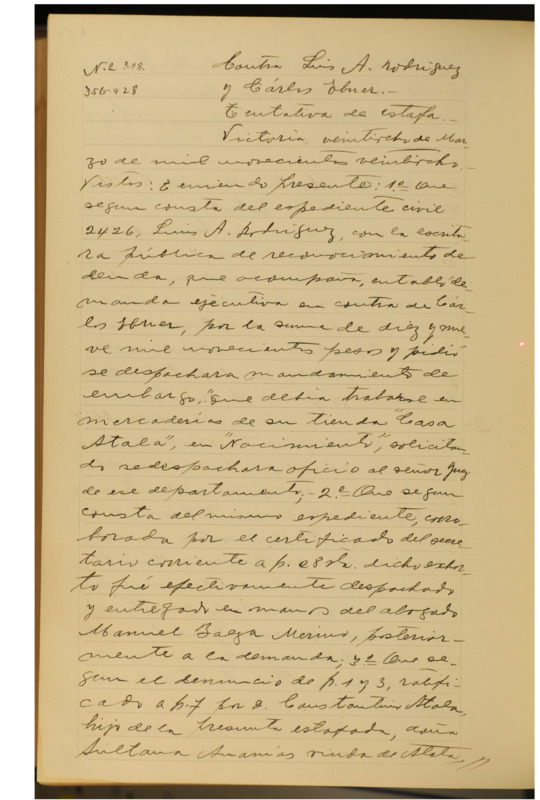 N.º 318. Contra Luis A. Rodriguez
356-928 y Cárlos Ebner.-
Tentativa de estafa.-
Victoria, veintiocho de Mar-
zo de mil novecientos veintiocho.-
Vistos: Teniendo presente: 1.º Que
segun consta del espediente civil
2426, Luis A. Rodriguez, con la escritu-
ra pública de reconocimiento de
deuda, que acompaña, entabló de-
manda ejecutiva en contra de Cár-
los Ebner, por la suma de diez y nue-
ve mil novecientos pesos y pidió
se despachara mandamiento de
embargo, "que debia trabarse en
mercaderías de su tienda "Casa
Atala", en "Nacimiento", solicitan-
do se despachara oficio al señor Juez
de ese departamento;- 2.º Que segun
consta del mismo espediente, corro-
borada por el certificado del secre-
tario corriente a p. 28 vta. dicho exhor-
to fué efectivamente despachado
y entregado en manos del abogado
Manuel Baeza Merino, posterior-
mente a la demanda; 3.º Que se-
gun el denuncio de p. 1 y 3, ratifi-
cado a p. 7 por d. Constantino Atala,
hijo de la presunta estafada, doña
Sultana Ananías viuda de Atala,